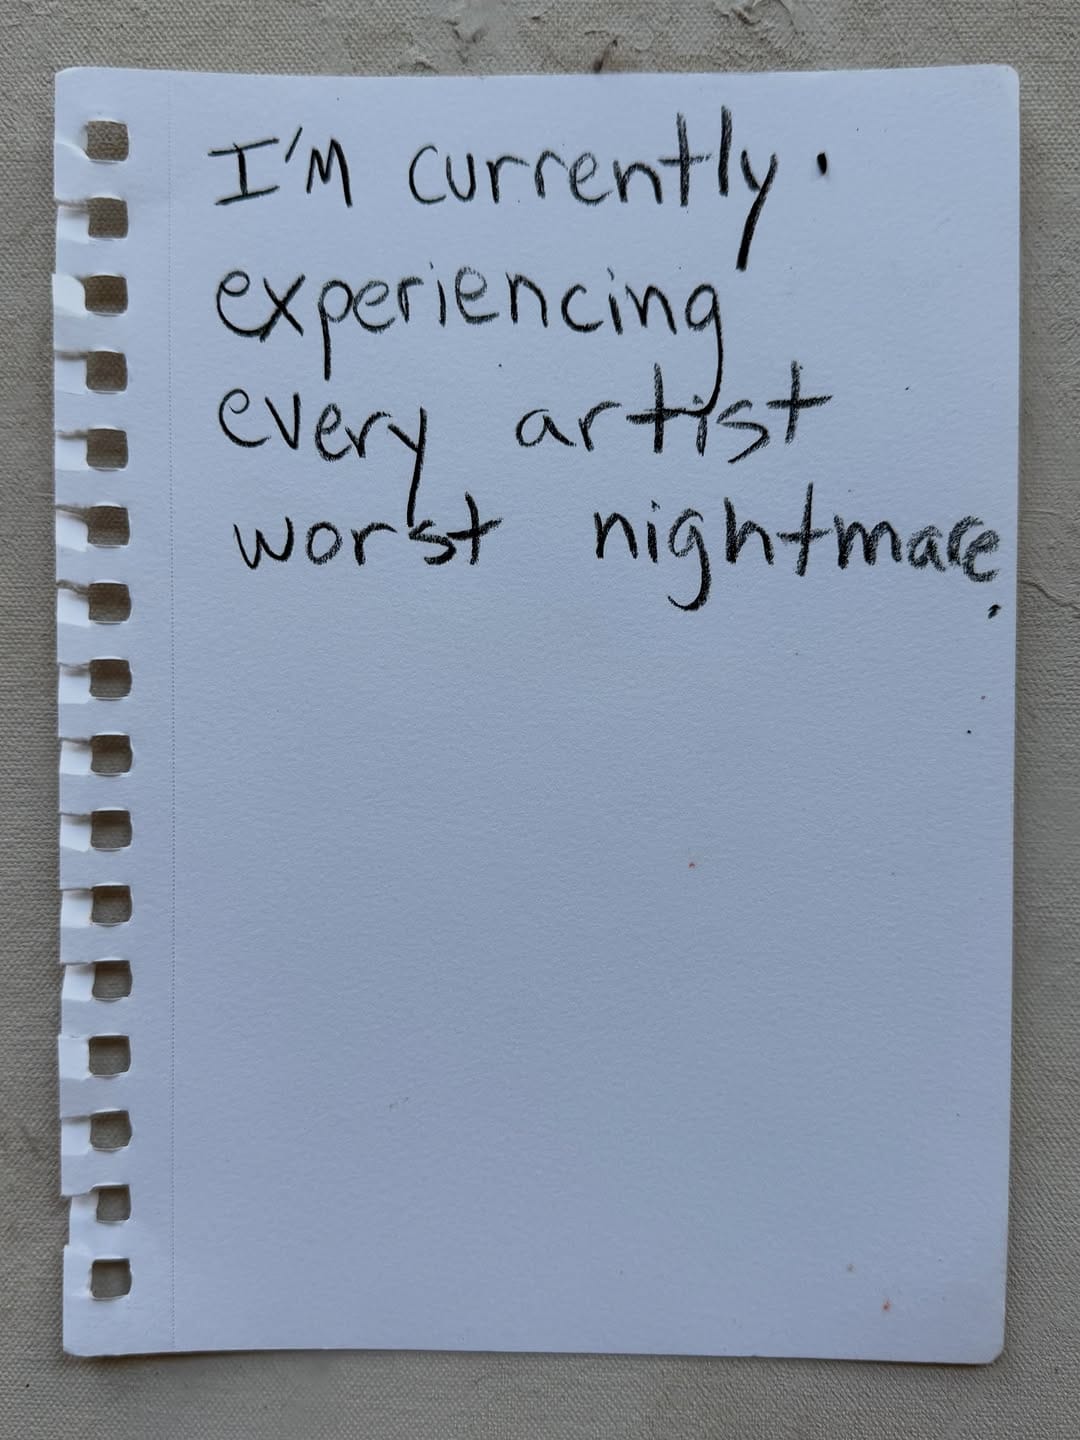 I'M currently.
experiencing
every artist
worst nightmare.